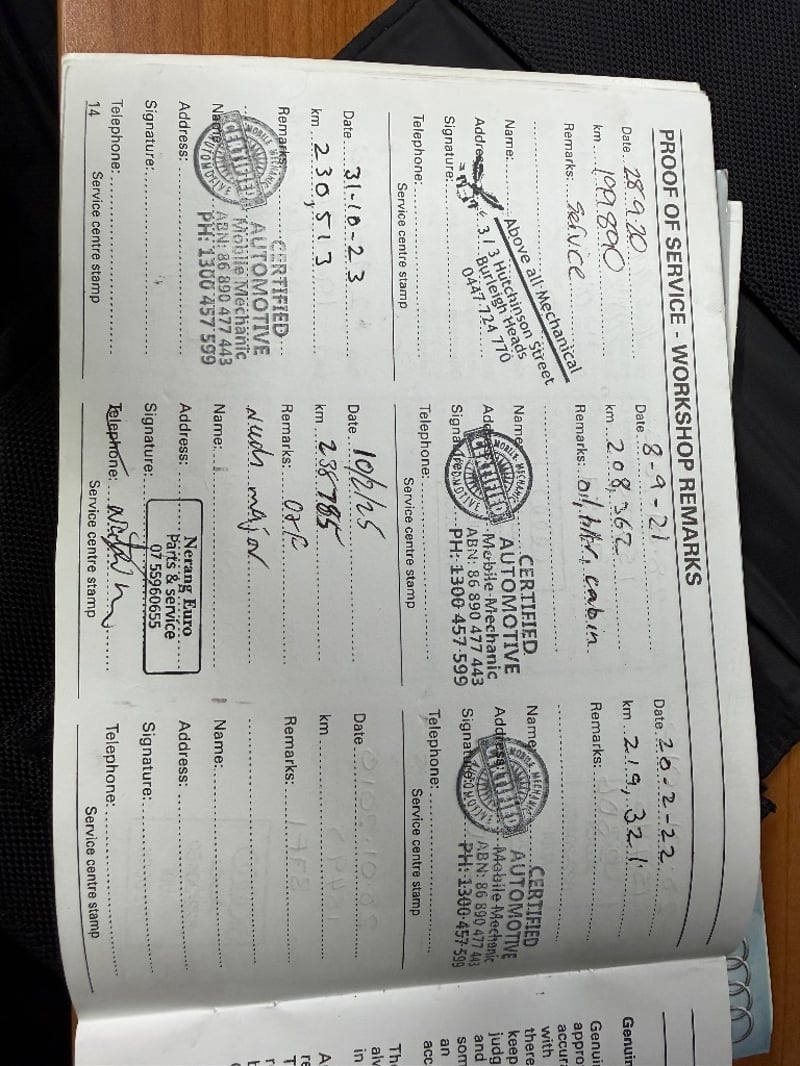 PROOF OF SERVICE - WORKSHOP REMARKS
Date 28.9.20
km 199890
Remarks: Service
Name:
Address:
Signature:
Telephone:
Above all Mechanical
3 / 3 Hutchinson Street
Burleigh Heads
0447 724 770
Service centre stamp
Date 8-9-21
km 208,362
Remarks: oil, filter, cabin
Name
Address
Signature
Telephone:
MOBILE MECHANIC
CERTIFIED
AUTOMOTIVE
CERTIFIED
AUTOMOTIVE
Mobile Mechanic
ABN: 86 890 477 443
PH: 1300 457 599
Service centre stamp
Date 20-2-22
km 219,321
Remarks:
Name
Address:
Signature:
Telephone:
MOBILE MECHANIC
CERTIFIED
AUTOMOTIVE
CERTIFIED
AUTOMOTIVE
Mobile Mechanic
ABN: 86 890 477 443
PH: 1300 457 599
Service centre stamp
Date 31-10-23
km 230,513
Remarks:
Name:
Address:
Signature:
Telephone:
MOBILE MECHANIC
CERTIFIED
AUTOMOTIVE
CERTIFIED
AUTOMOTIVE
Mobile Mechanic
ABN: 86 890 477 443
PH: 1300 457 599
Service centre stamp
14
Date 10/2/25
km 238785
Remarks:
major
Name:
Address:
Signature:
Telephone:
Nerang Euro
Parts & service
07 55960655
Service centre stamp
Date
km
Remarks:
Name:
Address:
Signature:
Telephone:
Service centre stamp
Genuin
Genuin
appro
accura
with
there
keep
judg
and
som
an
acc